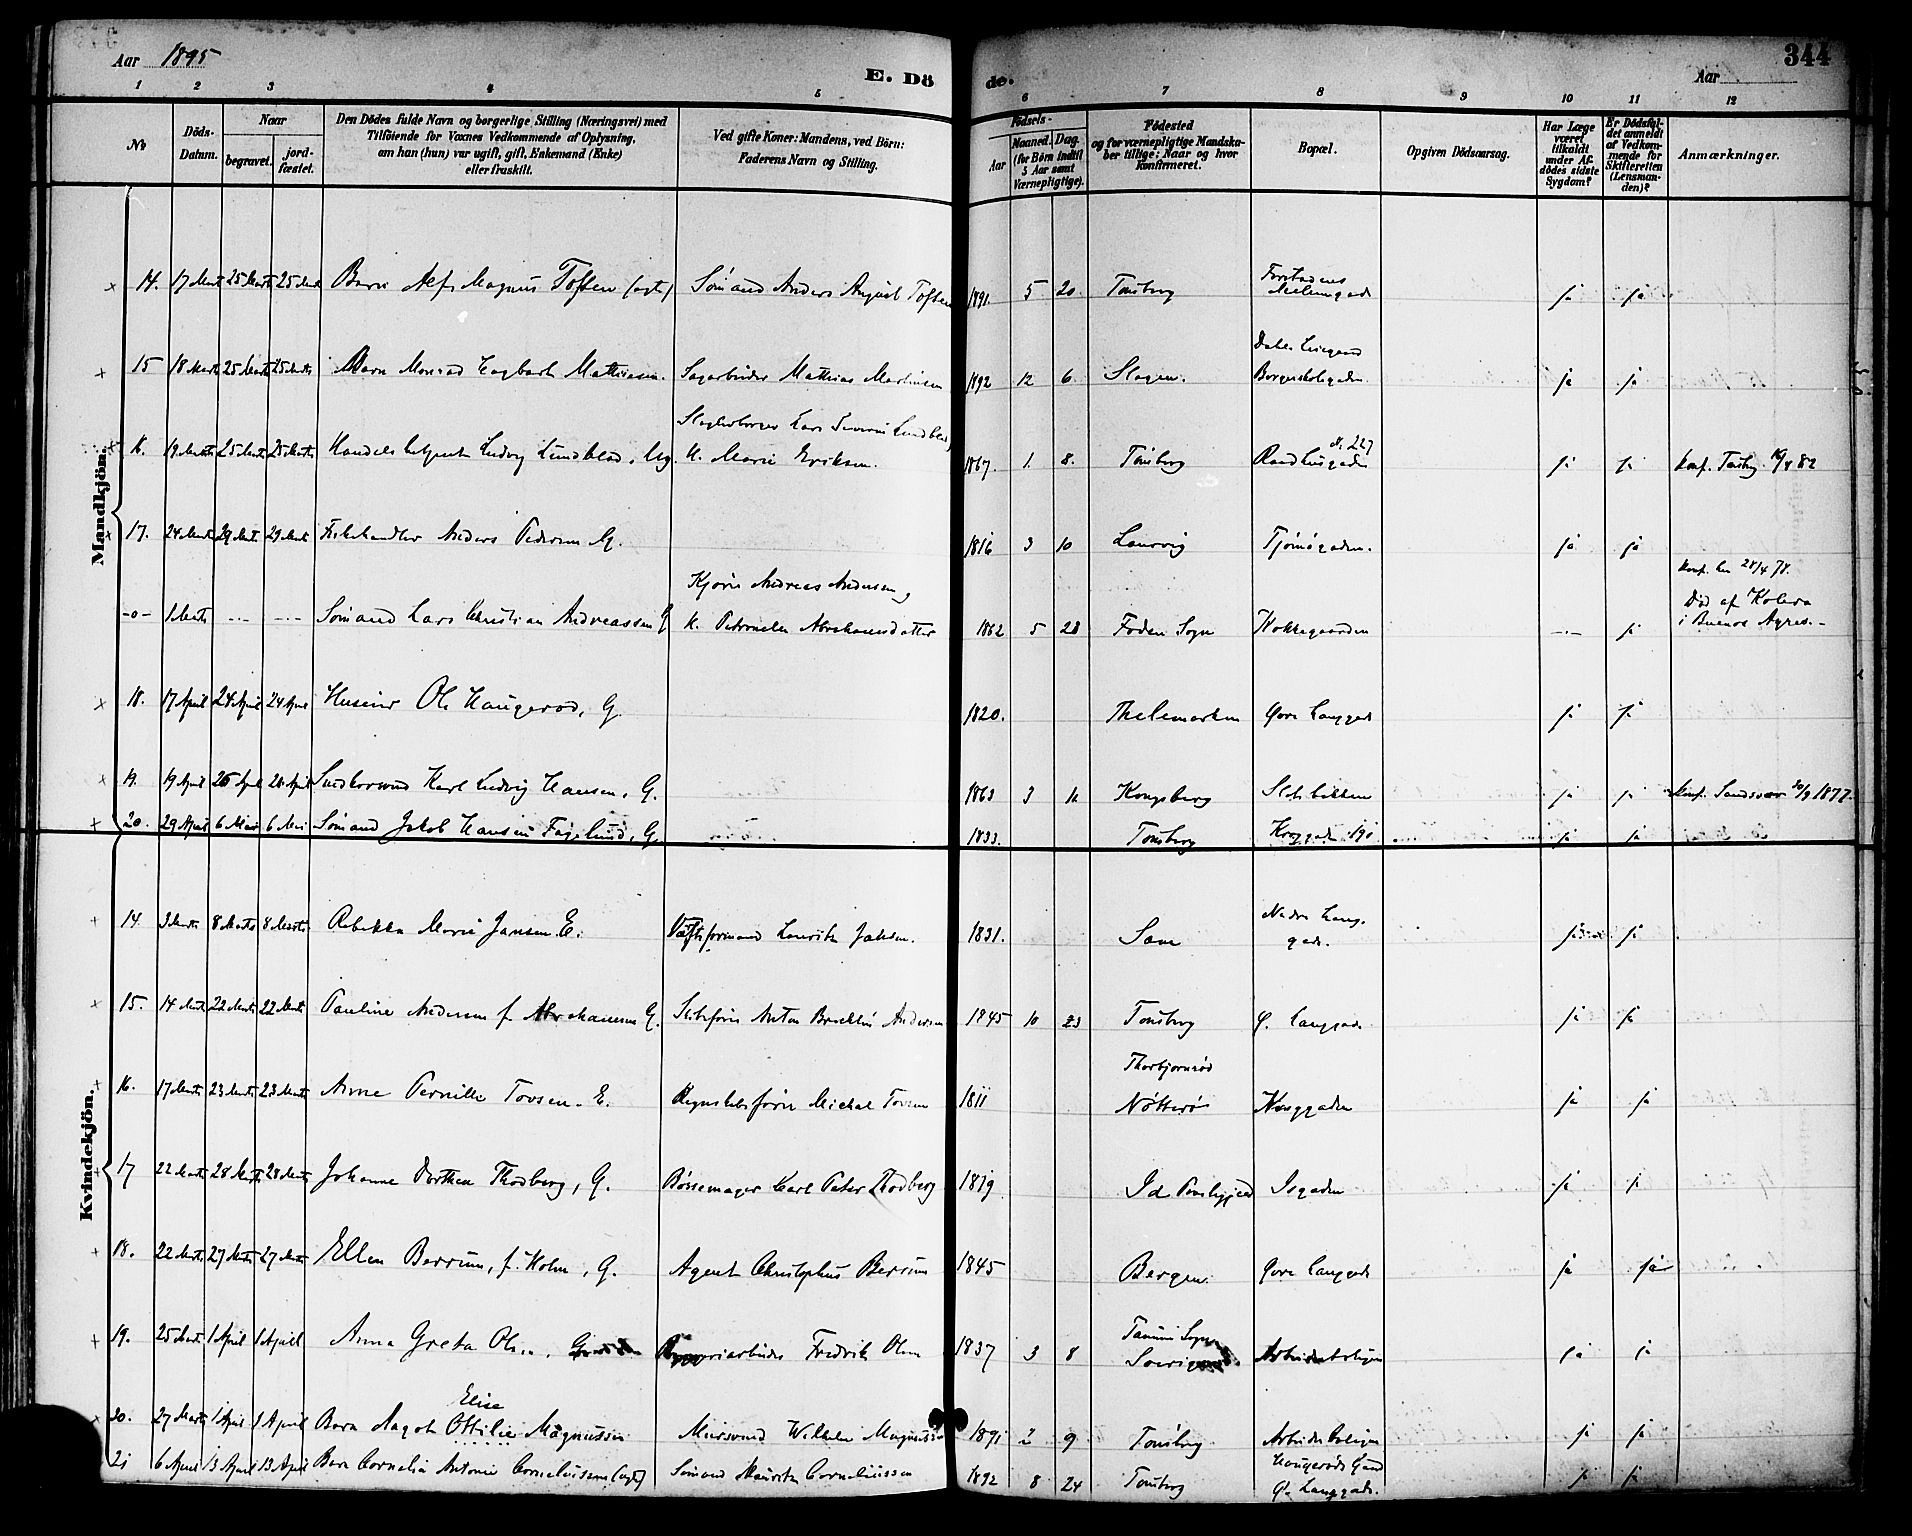 Aar 1895
E. Dö
de.
Aar
344
1 2 3 4 5 6 7 8 9 10 11 12
No
Döds-Datum.
Naar
begravet.
jord-fæstet.
Den Dödes fulde Navn og borgerlige Stilling (Næringsvei) med
Tilföiende for Voxnes Vedkommende af Oplysning,
om han (hun) var ugift, gift, Enkemand (Enke)
eller fraskilt.
Ved gifte Koner: Mandens, ved Börn:
Faderens Navn og Stilling.
Födsels-
Aar
Maaned. Dag.
(for Börn indtil
5 Aar samt
Værnepligtige).
Födested
og for værnepligtige Mandska-
ber tillige: Naar og hvor
konfirmeret.
Bopæl.
Opgiven Dödsaarsag.
Har Læge
været
tilkaldt
under Af-
dödes sidste
Sygdom?
Er Dödsfal-
det anmeldt
af Vedkom-
mende for
Skifteretten
(Lensman-
den)?
Anmærkninger.
Mandkjön.
14. 17 Marts 25 Marts 25 Marts Barn Alf Magnus Toften (ægte) Sömand Anders August Toften 1891. 5 20 Tönsberg ja ja
15 18 Marts 25 Marts 25 Marts Barn Monrad Hagbarth Mathiesen. Mathias Martinsen 1892 12 6. Slagen. ja ja
16. 19 Marts 25 Marts 25 Marts Ludvig Lundblad, Ug. Lars Severin Lundblad, H. Marie Eriksen. 1867. 1. 8. Tönsberg Raadhusgaden No 227 ja ja Konf. Tönsbg. 82
17. 24 Marts 29 Marts 29 Marts Fiskehandler Anders Pedersen G. 1816 3 10 Laurvig Tjömögaden. ja ja
-o- 1 Marts Sömand Lars Christian Andreassen G Andreas Andersen, H. Abrahamsdatter 1862 5 28 Sogn Kokkegaarden ja Konf. her 28/4 78. Död af Kolera i Buenos Ayres.-
18. 17 April 24 April 24 April Ole Haugerød, G. 1820. Thelemarken Övre Langgade ja ja
19. 19 April 26 April 26 April Karl Ludvig Hansen, G. 1863 3 Kongsberg ja ja Konf. Sandsvær 1877.
20. 29 April 6 Mai 6 Mai Sömand Jakob Hansen Fagelund, G. 1833. Tönsberg ja ja
Kvindekjön.
14. 3 Marts 8 Marts 8 Marts Rebekka Marie Jansen E. Værftsformand Lauritz 1831. Sæm Nedre Lang-gade. ja ja
15. 14 Marts 22 Marts 22 Marts Pauline Andersen f. Abrahamsen G. Skibsförer Anton Andersen 1845 10 23 Tönsberg Ö. Langgade ja ja
16. 17 Marts 23 Marts 23 Marts Anne Pernille Tovsen. E. Michal Tovsen 1811 Thorbjørnsrød Nötterö ja ja
17 22 Marts 28 Marts 28 Marts Johanne Dorthea Thodberg, G. Börsemager Karl Peter Thodberg 1819 Id ja ja
18. 22 Marts 27 Marts 27 Marts Ellen Berrum, f. Holm, G. Agent Christophus Berrum 1845 Bergen. Övre Langgade ja ja
19. 25 Marts 1 April 1 April Anna Greta Olsen. Bryggeriarbeider Fredrik Olsen 1837 3 8 Tanum Sogn Sverige Arbeiderboligen ja ja
20. 27 Marts 1 April 1 April Barn Aagot Elise Ottilie Magnussen Wilhelm Magnussen 1891 2 9 Tönsberg Arbeiderboligen ja ja
21 6 April 13 April 13 April Barn Cornelia Antonie Corneliussen (ægte) Sömand Corneliussen 1892 8 24 Tönsberg Haugerøds Gaard Ö. Langgade. ja ja